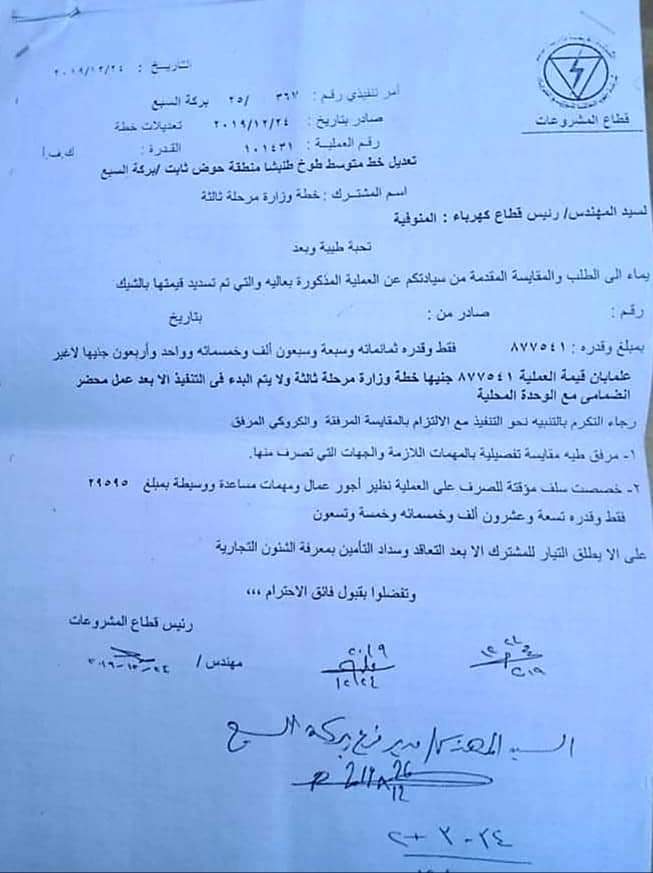 التاريخ : ٢٠١٩/١٢/٢٤
قطاع المشروعات
أمر تنفيذي رقم : ٣٦٧ /٢٥ بركة السبع
صادر بتاريخ : ٢٠١٩/١٢/٢٤ تعديلات خطة
رقم العملية : ١٠١٤٣١ القدرة : ك.ف.أ
تعديل خط متوسط طوخ طنبشا منطقة حوض ثابت /بركة السبع
اسم المشترك : خطة وزارة مرحلة ثالثة
لسيد المهندس/ رئيس قطاع كهرباء : المنوفية
تحية طيبة وبعد
يماء الى الطلب والمقايسة المقدمة من سيادتكم عن العملية المذكورة بعاليه والتي تم تسديد قيمتها بالشيك
رقم : صادر من : بتاريخ
بمبلغ وقدره : ٨٧٧٥٤١ فقط وقدره ثمانمائه وسبعة وسبعون ألف وخمسمائه وواحد وأربعون جنيها لاغير
علمابان قيمة العملية ٨٧٧٥٤١ جنيها خطة وزارة مرحلة ثالثة ولا يتم البدء فى التنفيذ الا بعد عمل محضر
انضمامى مع الوحدة المحلية
رجاء التكرم بالتنبيه نحو التنفيذ مع الالتزام بالمقايسة المرفقة والكروكي المرفق
١- مرفق طيه مقايسة تفصيلية بالمهمات اللازمة والجهات التي تصرف منها.
٢- خصصت سلف مؤقتة للصرف على العملية نظير أجور عمال ومهمات مساعدة ووسيطة بمبلغ ٢٩٥٩٥
فقط وقدره تسعة وعشرون ألف وخمسمائه وخمسة وتسعون
على الا يطلق التيار للمشترك الا بعد التعاقد وسداد التأمين بمعرفة الشئون التجارية
وتفضلوا بقبول فائق الاحترام ،،،
رئيس قطاع المشروعات
مهندس / ٢٠١٩-١٢-٢٤
٢٠١٩
١٢/٢٤
السيد المهندس/ مدير فرع بركة السبع